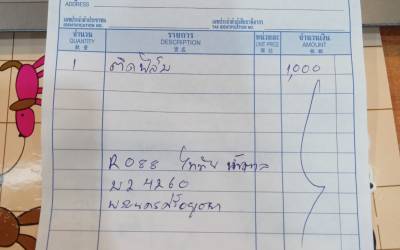 ADDRESS
เลขประจำตัวประชาชน
IDENTIFICATION NO.
เลขประจำตัวผู้เสียภาษีอากร
TAX IDENTIFICATION NO.
จำนวน รายการ หน่วยละ จำนวนเงิน
QUANTITY DESCRIPTION UNIT PRICE AMOUNT
數量 貨名
1 ติดฟิล์ม 1,000
R088
บว 4260
พระนครศรีอยุธยา